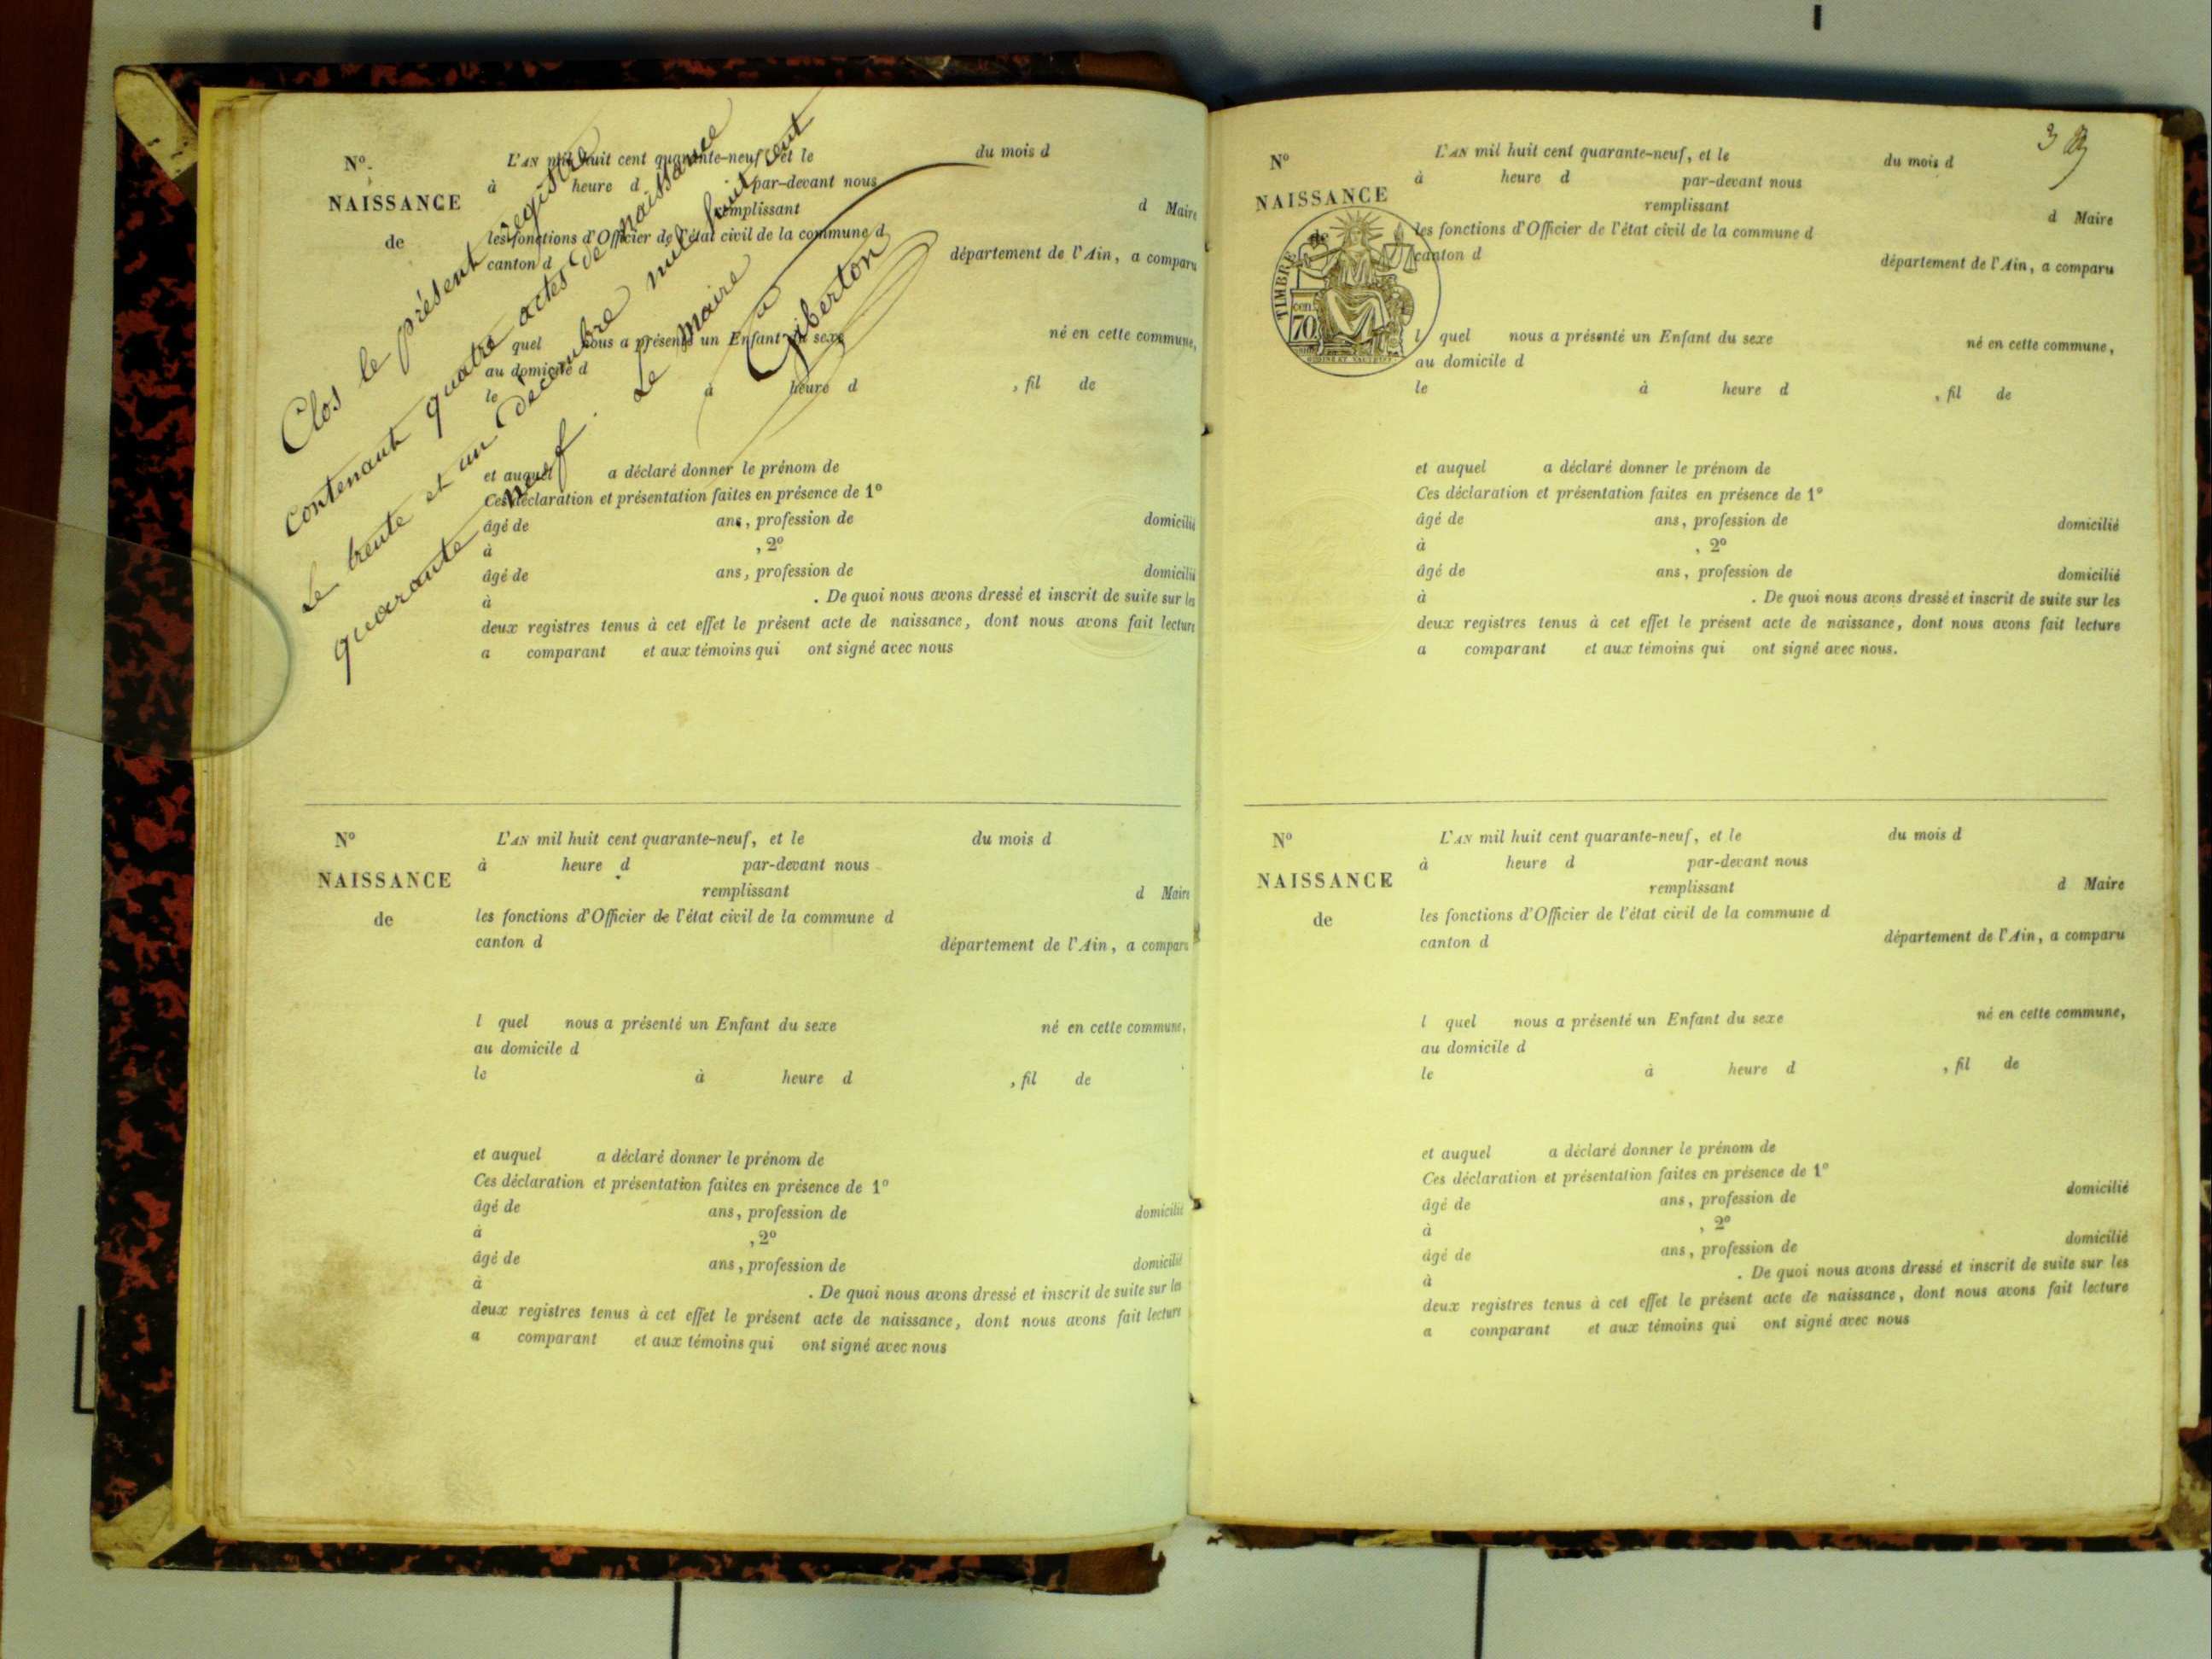 Clos le présent registre
contenant quatre actes de naissance
Le trente et un Decembre mil huit cent
quarante neuf. Le Maire
Giberton
Nº
NAISSANCE
de
L'AN mil huit cent quarante-neuf, et le du mois d
à heure d par-devant nous
remplissant d Maire
les fonctions d'Officier de l'état civil de la commune d
canton d département de l'Ain, a comparu
quel nous a présenté un Enfant du sexe né en cette commune,
au domicile d
le à heure d , fil de
et auquel a déclaré donner le prénom de
Ces déclaration et présentation faites en présence de 1º
âgé de ans, profession de domicilié
à , 2º
âgé de ans, profession de domicilié
à . De quoi nous avons dressé et inscrit de suite sur les
deux registres tenus à cet effet le présent acte de naissance, dont nous avons fait lecture
a comparant et aux témoins qui ont signé avec nous
Nº
NAISSANCE
de
L'AN mil huit cent quarante-neuf, et le du mois d
à heure d par-devant nous
remplissant d Maire
les fonctions d'Officier de l'état civil de la commune d
canton d département de l'Ain, a comparu
l quel nous a présenté un Enfant du sexe né en cette commune,
au domicile d
le à heure d , fil de
et auquel a déclaré donner le prénom de
Ces déclaration et présentation faites en présence de 1º
âgé de ans, profession de domicilié
à , 2º
âgé de ans, profession de domicilié
à . De quoi nous avons dressé et inscrit de suite sur les
deux registres tenus à cet effet le présent acte de naissance, dont nous avons fait lecture
a comparant et aux témoins qui ont signé avec nous
Nº
NAISSANCE
de
TIMBRE
cen.
70
L'AN mil huit cent quarante-neuf, et le du mois d
à heure d par-devant nous
remplissant d Maire
les fonctions d'Officier de l'état civil de la commune d
canton d département de l'Ain, a comparu
l quel nous a présenté un Enfant du sexe né en cette commune,
au domicile d
le à heure d , fil de
et auquel a déclaré donner le prénom de
Ces déclaration et présentation faites en présence de 1º
âgé de ans, profession de domicilié
à , 2º
âgé de ans, profession de domicilié
à . De quoi nous avons dressé et inscrit de suite sur les
deux registres tenus à cet effet le présent acte de naissance, dont nous avons fait lecture
a comparant et aux témoins qui ont signé avec nous.
Nº
NAISSANCE
de
L'AN mil huit cent quarante-neuf, et le du mois d
à heure d par-devant nous
remplissant d Maire
les fonctions d'Officier de l'état civil de la commune d
canton d département de l'Ain, a comparu
l quel nous a présenté un Enfant du sexe né en cette commune,
au domicile d
le à heure d , fil de
et auquel a déclaré donner le prénom de
Ces déclaration et présentation faites en présence de 1º
âgé de ans, profession de domicilié
à , 2º
âgé de ans, profession de domicilié
à . De quoi nous avons dressé et inscrit de suite sur les
deux registres tenus à cet effet le présent acte de naissance, dont nous avons fait lecture
a comparant et aux témoins qui ont signé avec nous